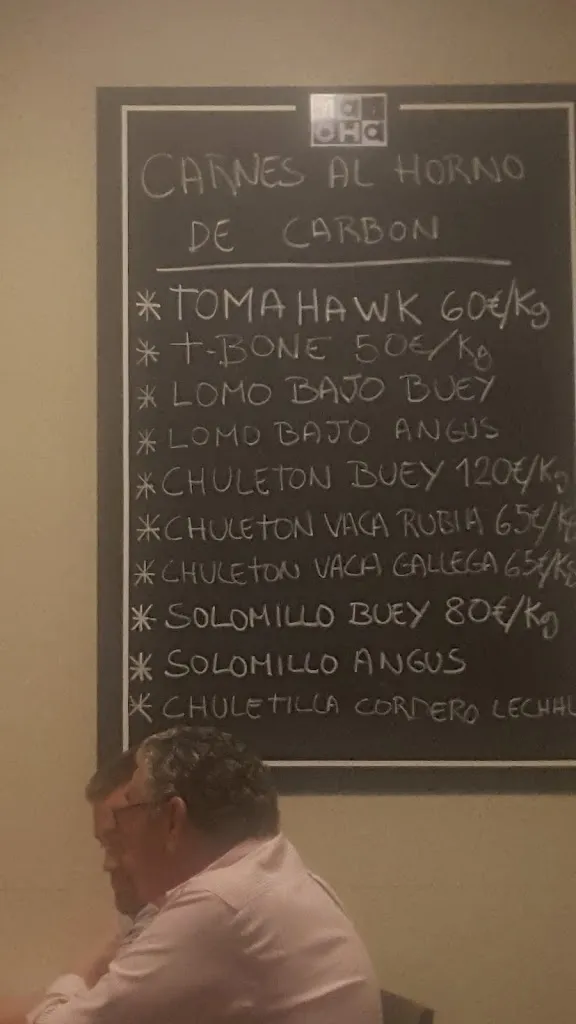 CARNES AL HORNO
DE CARBON
* TOMAHAWK 60€/Kg
* T-BONE 50€/Kg
* LOMO BAJO BUEY
* LOMO BAJO ANGUS
* CHULETON BUEY 120€/Kg
* CHULETON VACA RUBIA 65€/Kg
* CHULETON VACA GALLEGA 65€/Kg
* SOLOMILLO BUEY 80€/Kg
* SOLOMILLO ANGUS
* CHULETILLA CORDERO LECHAL